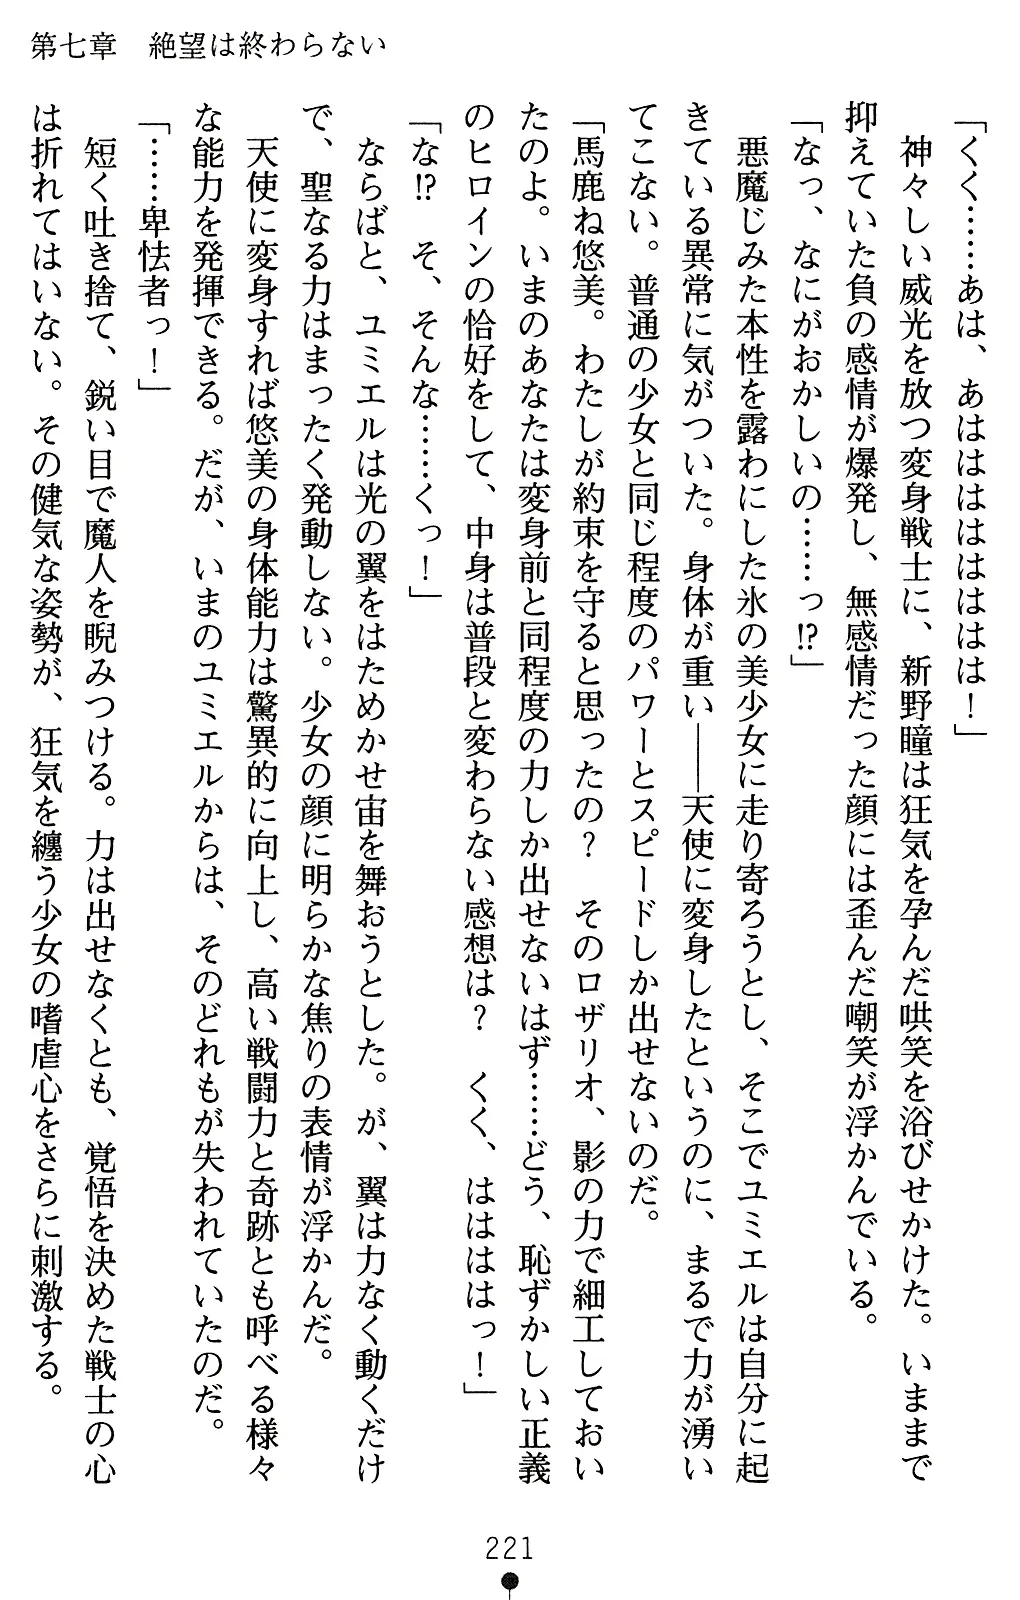 第七章　絶望は終わらない
「くく……あは、あはははははは！」
　神々しい威光を放つ変身戦士に、新野瞳は狂気を孕んだ哄笑を浴びせかけた。いままで
抑えていた負の感情が爆発し、無感情だった顔には歪んだ嘲笑が浮かんでいる。
「なっ、なにがおかしいの……っ!?」
　悪魔じみた本性を露わにした氷の美少女に走り寄ろうとし、そこでユミエルは自分に起
きている異常に気がついた。身体が重い――天使に変身したというのに、まるで力が湧い
てこない。普通の少女と同じ程度のパワーとスピードしか出せないのだ。
「馬鹿ね悠美。わたしが約束を守ると思ったの？　そのロザリオ、影の力で細工しておい
たのよ。いまのあなたは変身前と同程度の力しか出せないはず……どう、恥ずかしい正義
のヒロインの恰好をして、中身は普段と変わらない感想は？　くく、はははっ！」
「な!?　そ、そんな……くっ！」
　ならばと、ユミエルは光の翼をはためかせ宙を舞おうとした。が、翼は力なく動くだけ
で、聖なる力はまったく発動しない。少女の顔に明らかな焦りの表情が浮かんだ。
　天使に変身すれば悠美の身体能力は驚異的に向上し、高い戦闘力と奇跡とも呼べる様々
な能力を発揮できる。だが、いまのユミエルからは、そのどれもが失われていたのだ。
「……卑怯者っ！」
　短く吐き捨て、鋭い目で魔人を睨みつける。力は出せなくとも、覚悟を決めた戦士の心
は折れてはいない。その健気な姿勢が、狂気を纏う少女の嗜虐心をさらに刺激する。
221